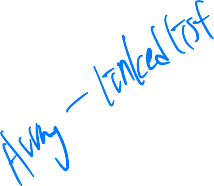 Array - linked list